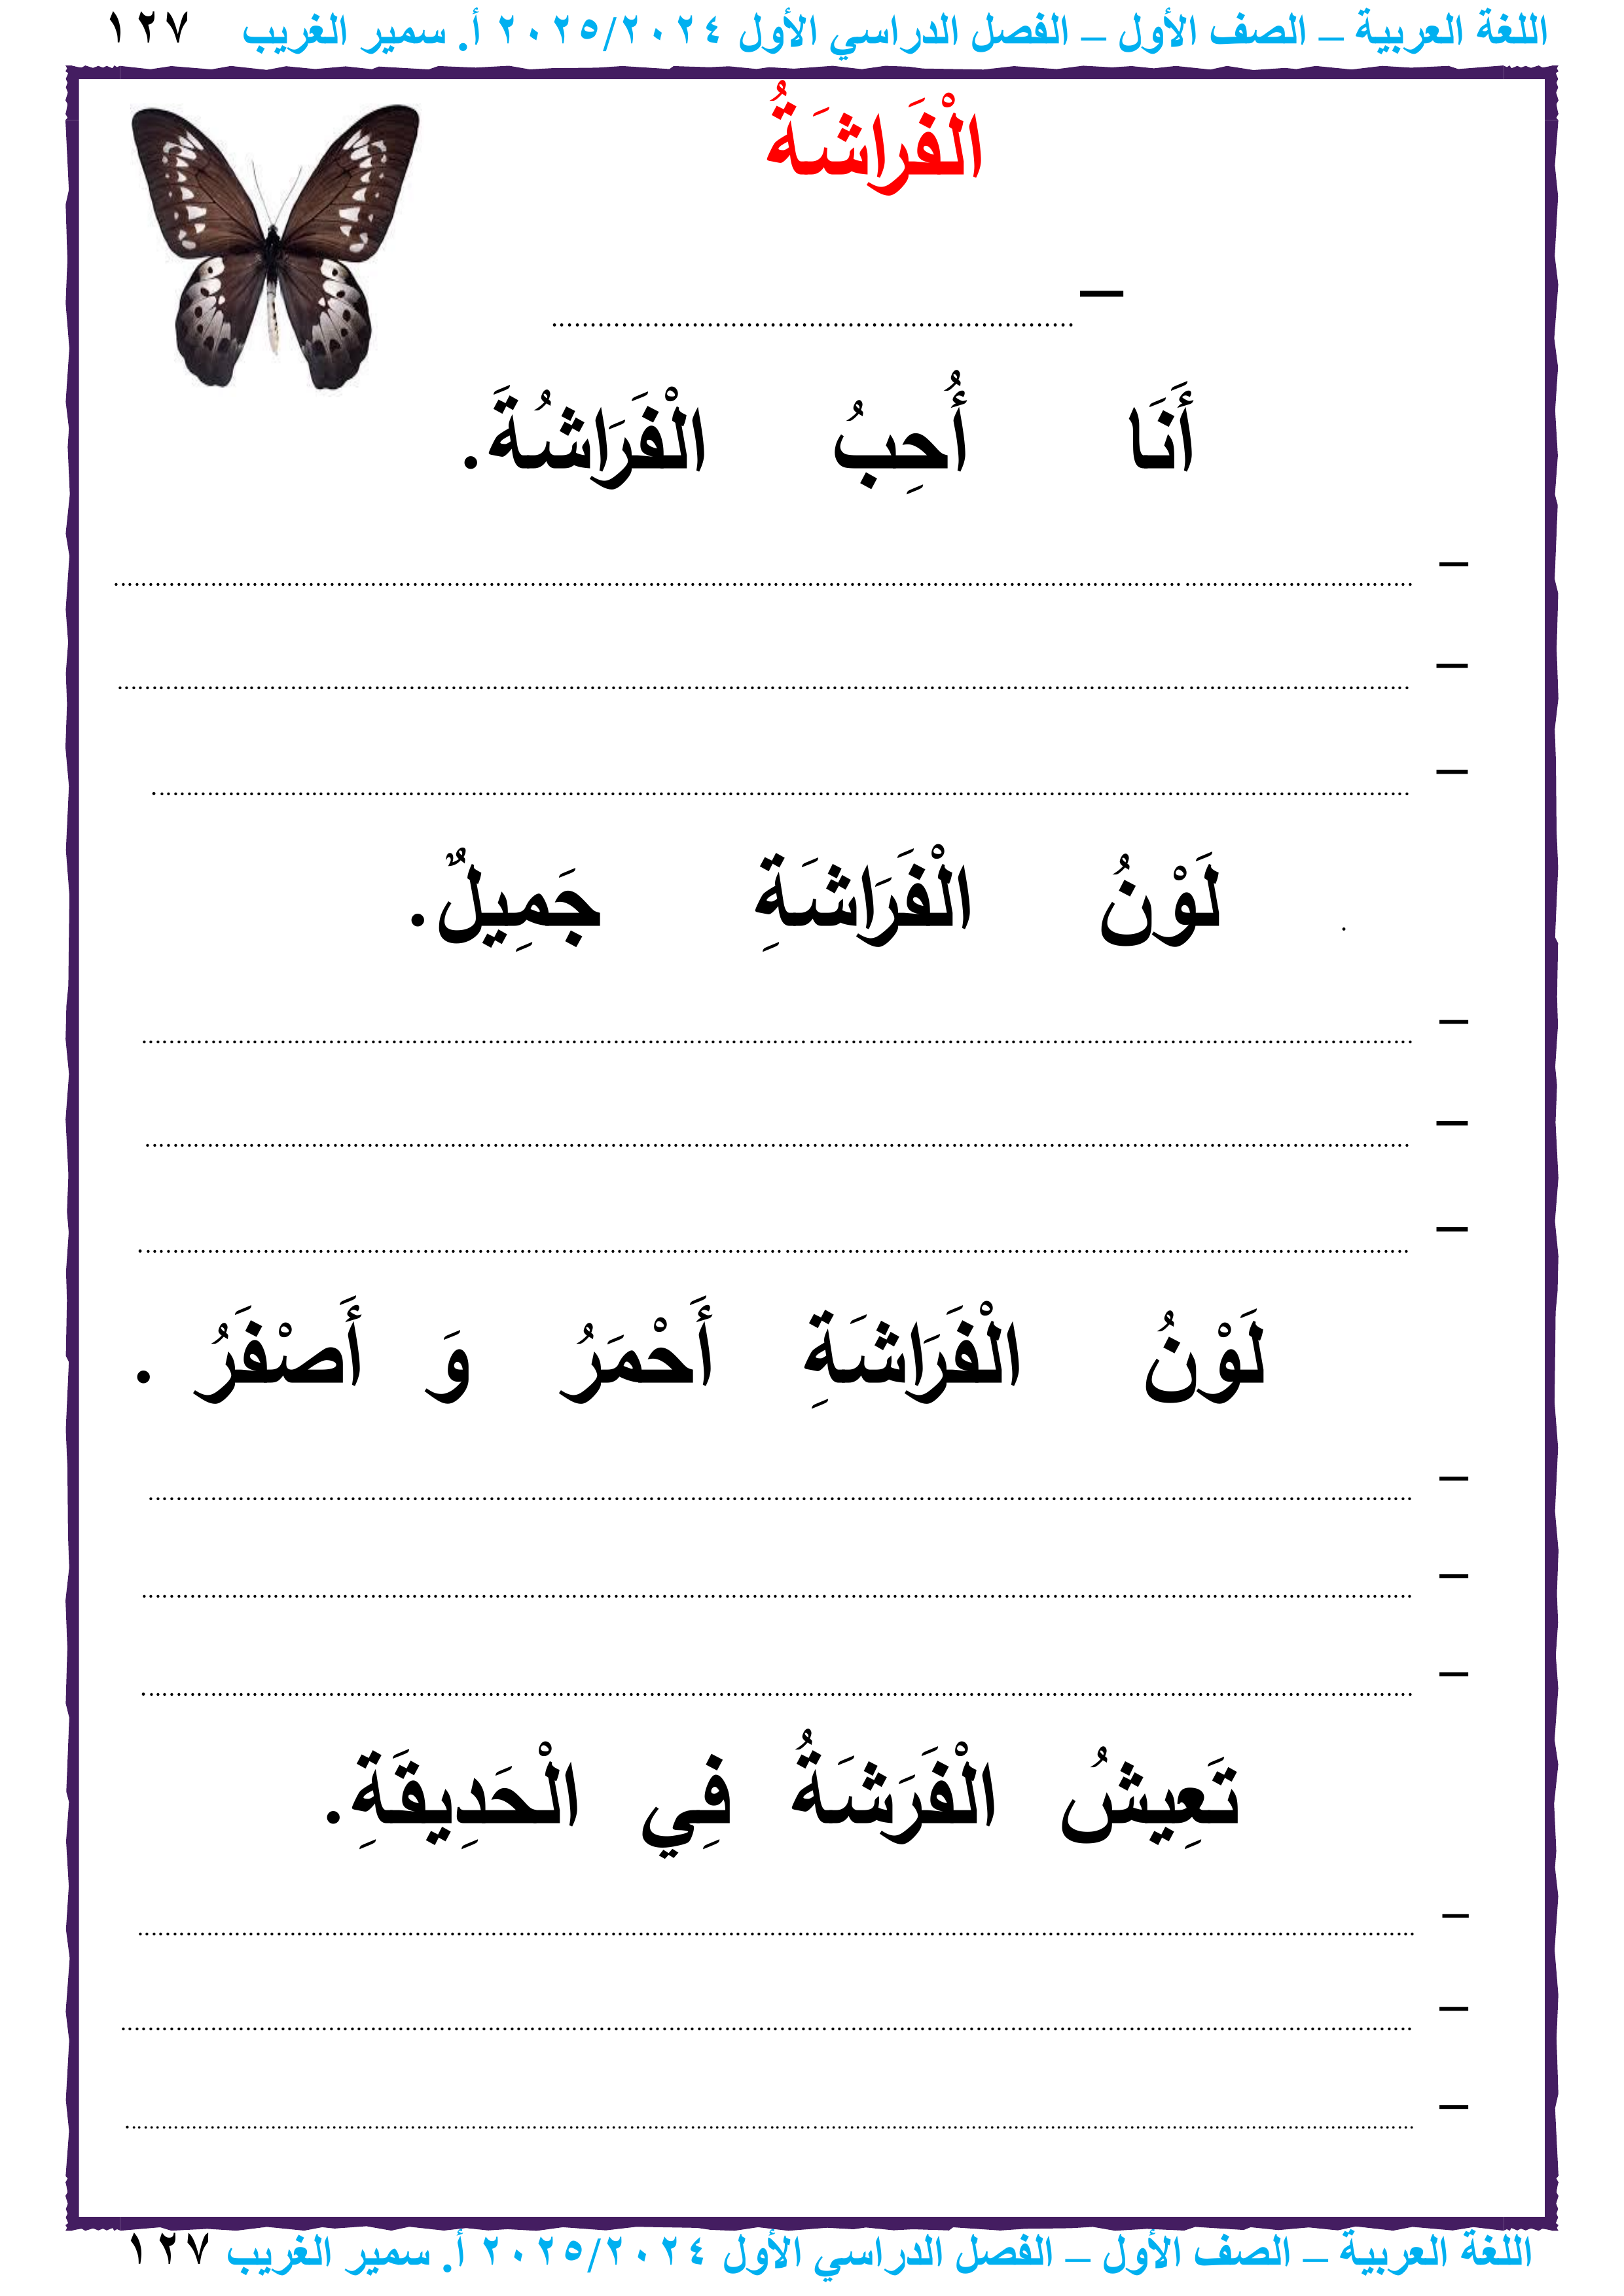 اللغة العربية – الصف الأول – الفصل الدراسي الأول ٢٠٢٥/٢٠٢٤ أ. سمير الغريب ١٢٧
الْفَرَاشَةُ
– ........................................
أَنَا أُحِبُ الْفَرَاشُةَ.
– ........................................
– ........................................
– ........................................
. لَوْنُ الْفَرَاشَةِ جَمِيلٌ.
– ........................................
– ........................................
– ........................................
لَوْنُ الْفَرَاشَةِ أَحْمَرُ وَ أَصْفَرُ .
– ........................................
– ........................................
– ........................................
تَعِيشُ الْفَرَشَةُ فِي الْحَدِيقَةِ.
– ........................................
– ........................................
– ........................................
اللغة العربية – الصف الأول – الفصل الدراسي الأول ٢٠٢٥/٢٠٢٤ أ. سمير الغريب ١٢٧